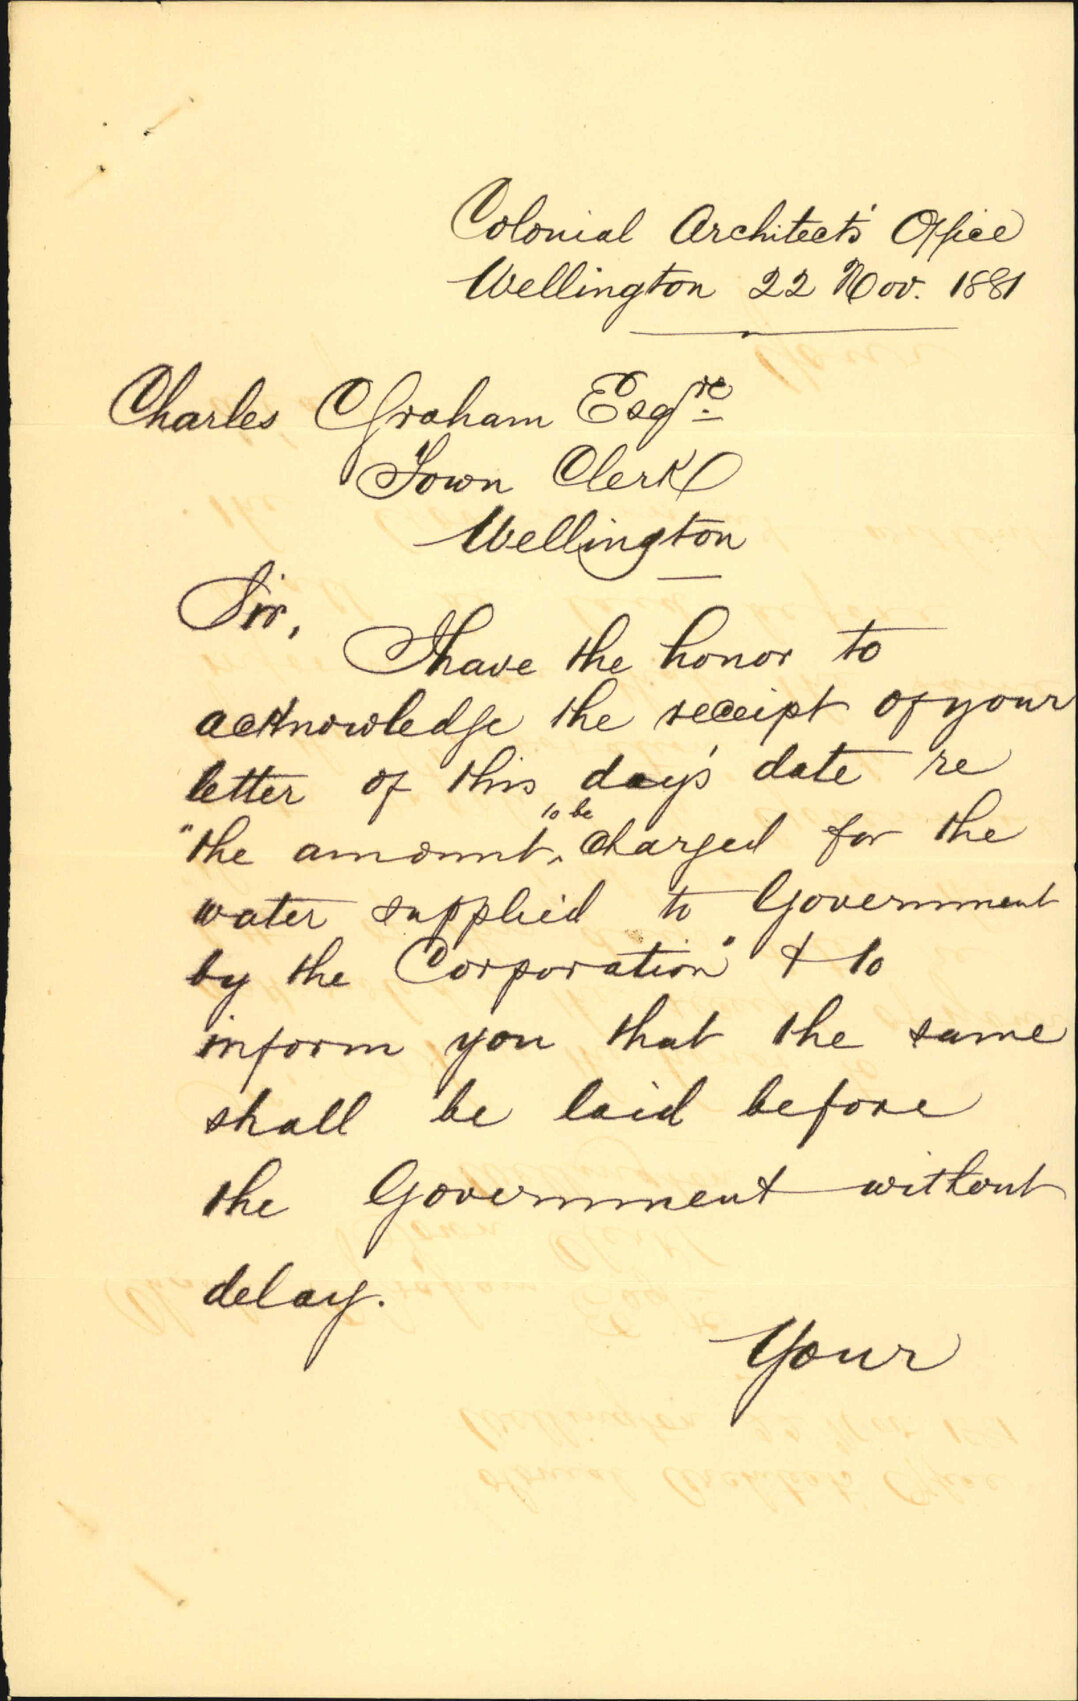 Colonial Architect's Office
Wellington 22 Nov. 1881
Charles Graham Esqre
Town Clerk
Wellington
Sir,
I have the honor to
acknowledge the receipt of your
letter of this day's date re
"the amount to be charged for the
water supplied to Government
by the Corporation" & to
inform you that the same
shall be laid before
the Government without
delay.
Your